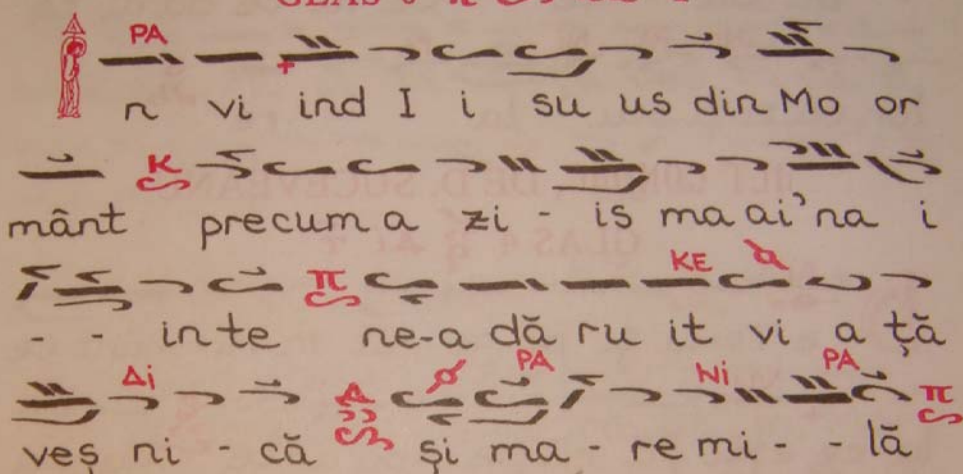 PA
n vi ind I i su us din Mo or
K
mânt precum a zi - is ma ai'na i
π KE
- - in te ne-a dă ru it vi a ță
Δi PA Ni PA π
veș ni - că și ma - re mi - - lă